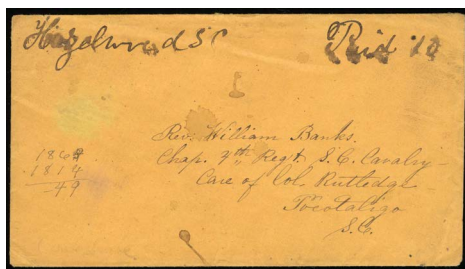 Hazelwood S C
Paid 10
Rev. William Banks.
Chap. 4th Regt. S. C. Cavalry
Care of Col. Rutledge
Pocotaligo
S.C.
1868
1814
49